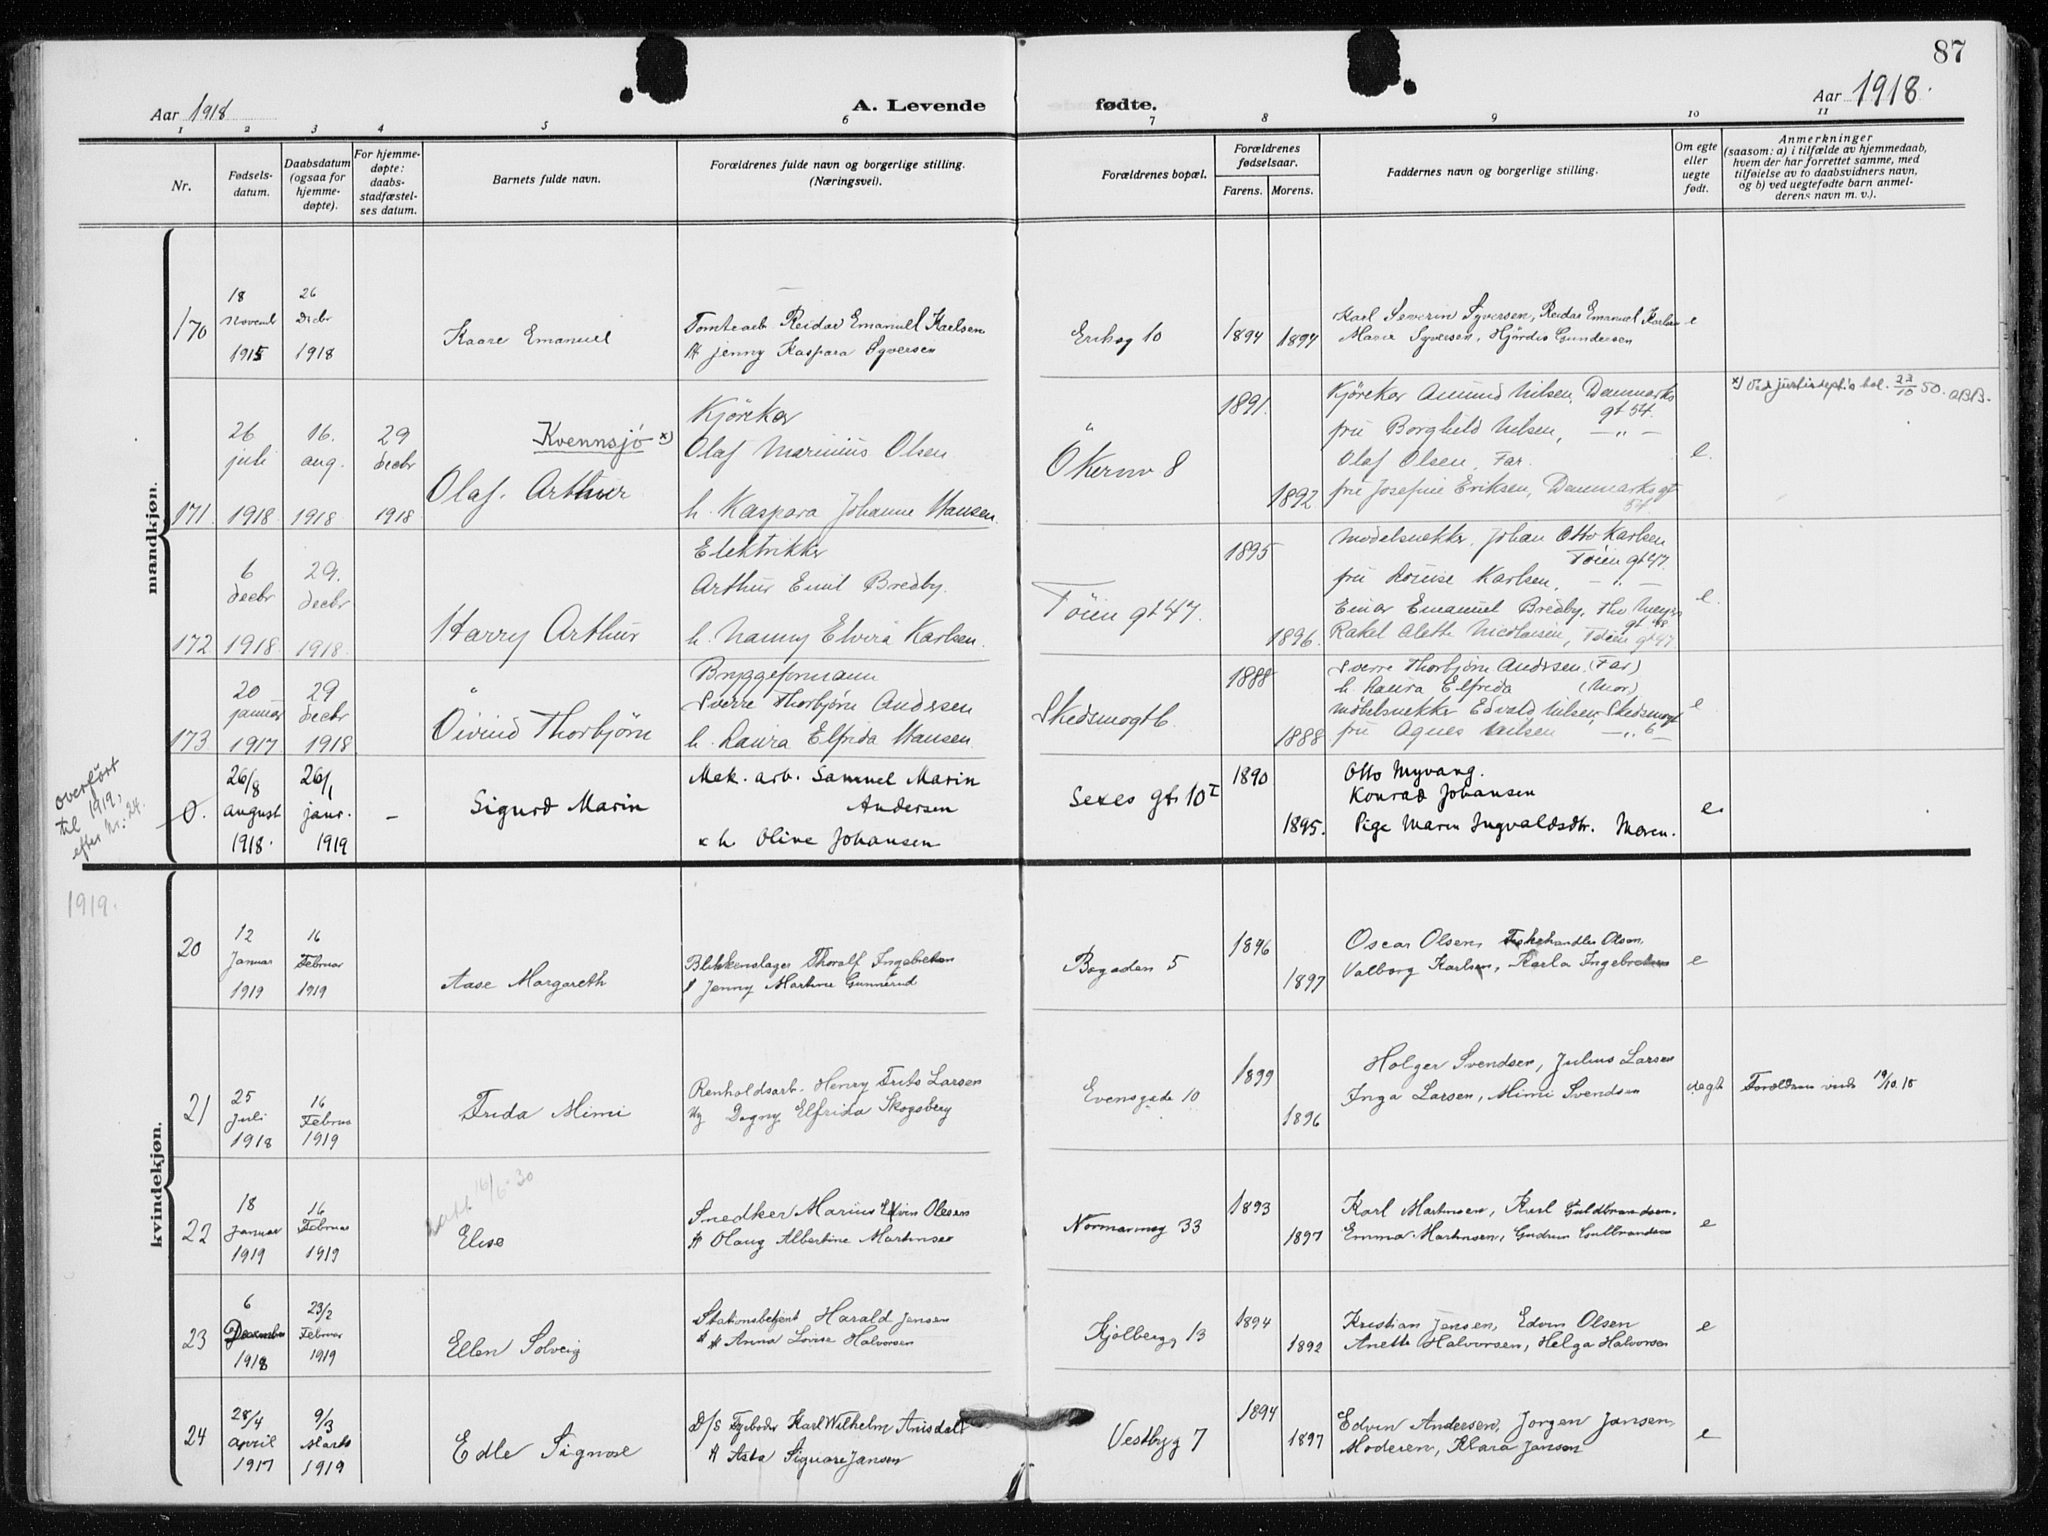 87
Aar 1918
A. Levende fødte.
Aar 1918.
1 2 3 4 5 6 7 8 9 10 11
Nr.
Fødsels-
datum.
Daabsdatum
(ogsaa for
hjemme-
døpte).
For hjemme-
døpte:
daabs-
stadfæstel-
ses datum.
Barnets fulde navn.
Forældrenes fulde navn og borgerlige stilling.
(Næringsvei).
Forældrenes bopæl.
Forældrenes
fødselsaar.
Farens. Morens.
Faddernes navn og borgerlige stilling.
Om egte
eller
uegte
født.
Anmerkninger
(saasom: a) i tilfælde av hjemmedaab,
hvem der har forrettet samme, med
tilføielse av to daabsvidners navn,
og b) ved uegtefødte barn anmel-
derens navn m. v.).
mandkjøn.
170
18
Novemb
1915
26
Decbr
1918
Kaare Emanuel
Tomtearb. Reidar Emanuel Karlsen
H Jenny Kaspara Syversen
10
1894 1894
Karl Severin Syversen, Reidar Emanuel Karlsen
Marie Syversen, Hjördis Gundersen
e
171
26
juli
1918
16.
aug.
1918
29
decbr
1918
Kvennsjö x)
Olaf Arthur
Kjörekar
Olaf Marinius Olsen
h. Kaspara Johanne Hansen.
Ökernv 8
1891.
1892
Kjörekar Amund Nilsen, Danmarks
gt 54.
fru Borghild Nilsen, — „ —
Olaf Olsen, Far.
fru Josefine Eriksen, Danmarksgt
54
e.
x) Ved justisdept's bel. 23/10 50.
172
6
decbr
1918.
29.
decbr
1918.
Harry Arthur
Elektriker
Arthur Emil Bredby.
h. Nanny Elvira Karlsen.
Töien gt 47.
1895
1896.
Modelsnekker Johan Otto Karlsen
Töien gt 47.
fru Louise Karlsen, — „ —
Einar Emanuel Bredby, Tho Meyers
gt 48
Rakel Olette Nicolaisen, Töien gt 47
e.
173
20
januar
1917.
29
decbr
1918
Öivind Thorbjörn
Bryggeformann
Sverre Thorbjörn Andersen
h. Laura Elfrida Hansen
Skedsmogt 6.
1888
1888
Sverre Thorbjörn Andersen (Far)
h. Laura Elfrida (Mor)
möbelsnekker Edvald Nilsen, Skedsmogt
fru Agnes Nilsen — „ 6 —
e
overfört
til 1919,
efter Nr: 24.
0.
26/8
august
1918.
26/1
janr.
1919
–
Sigurd Marin
Mek. arb. Samuel Marin
Andersen
x h Olive Johansen
Sexes gt. 10 I
1890
1895.
Otto Myvang.
Konrad Johansen
Pige Maren Ingvaldsdtr. Moren.
e.
1919.
kvindekjøn.
20
12
Januar
1919
16
Februar
1919
Aase Margareth
Blikkenslager Thoralf Ingebretsen
H Jenny Martine Gunnerud
Bogaden 5
1896
1897
Oscar Olsen, Fiskehandler Olsen,
Valborg Karlsen, Karla Ingebretsen
e
21
25
Juli
1918
16
Februar
1919
Frida Mimi
Renholdsarb. Henry Frits Larsen
Ug Dagny Elfrida Skogsberg
Evensgade 10
1899
1896
Holger Svendsen, Julius Larsen
Inga Larsen, Mimi Svendsen
uegt
Foreldrene viede 19/10.18
22
18
Januar
1919
16
Februar
1919
16/6-30
Elise
Snedker Marius Edvin Olsen
H Olaug Albertine Martinsen
Normannsg 33
1893
1897
Karl Martinsen, Karl Guldbrandsen.
Emma Martinsen, Gudrun Gulbrandsen
e
23
6
Desember
1918
23/2
Februar
1919
Ellen Solveig
Stationsbetjent Harald Jensen
H H Anna Lovise Halvorsen
Kjölbergg 13
1894
1892
Kristian Jensen, Edvin Olsen
Anette Halvorsen, Helga Halvorsen
e
24
28/4
April
1917
9/3
Marts
1919
Edle Signose
D/S Fyrböder Karl Wilhelm Arnsdal
H Asta Signare Jansen
Vestbyg 7
1894
1897
Edvin Andersen, Jorgen Jansen,
Moderen, Klara Jansen
e